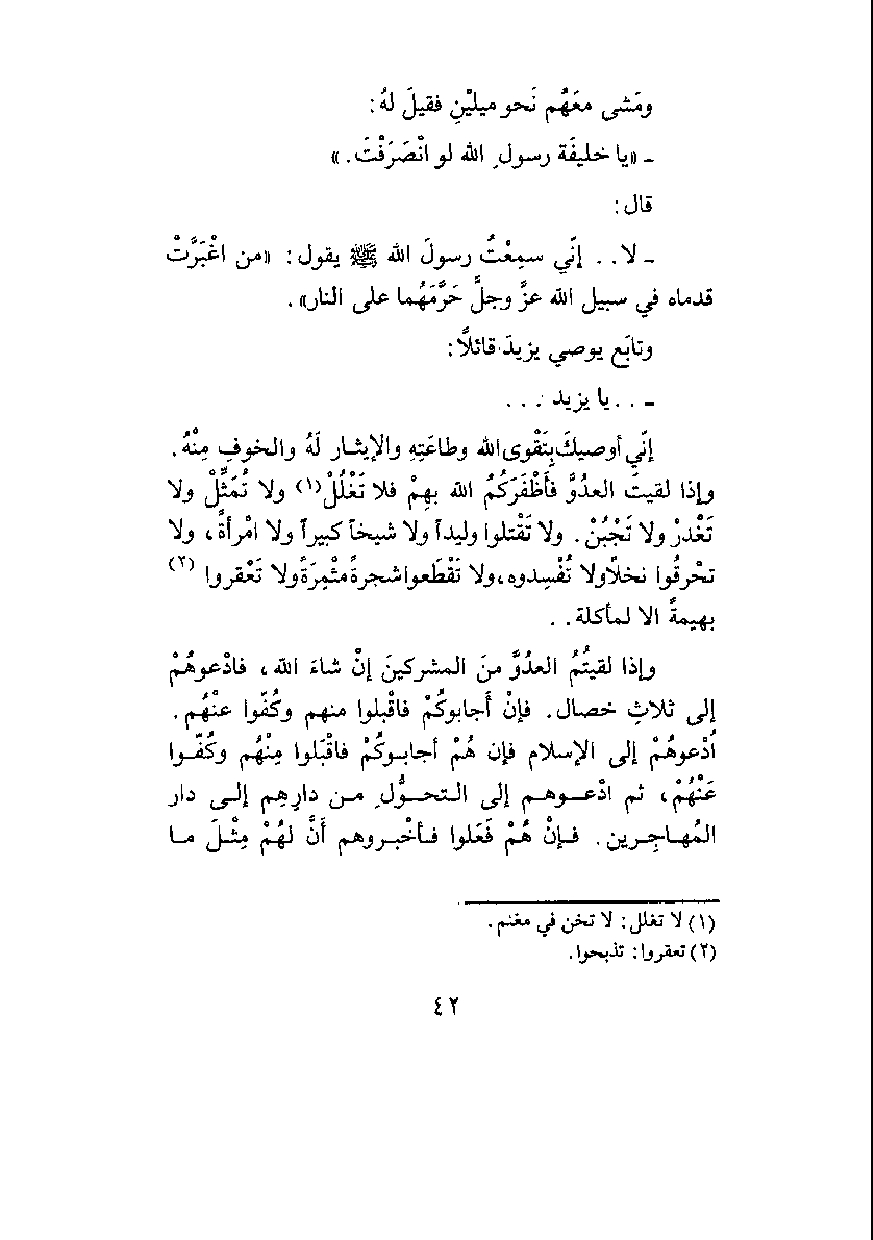 ومَشى معَهُم نَحو ميليْنِ فقيلَ لهُ:
ـ «يا خليفَة رسول ِ الله لو انْصَرَفْتَ.»
قال:
ـ لا.. إنّي سمِعْتُ رسولَ الله ﷺ يقول: «من اغْبَرَّتْ
قدماه في سبيل الله عزَّ وجلَّ حَرَّمَهُما على النار».
وتابَع يوصي يزيدَ قائلاً:
ـ ..يا يزيد ...
إنّي أوصيكَ بِتَقْوى الله وطاعَتِهِ والإيثار لَهُ والخوفِ مِنْهُ.
وإذا لقيتَ العدُوَّ فأَظْفَرَكمُ الله بهِمْ فلا تَغْلُلْ(١) ولا تُمَثِّلْ ولا
تَغْدرْ ولا تَجْبُنْ. ولا تَقْتلوا وليداً ولا شيخاً كبيراً ولا امْرأةً، ولا
تحْرقُوا نخلاً ولا تُفْسِدوه، ولا تَقْطَعوا شجرةً مثْمِرَةً ولا تَعْقروا(٢)
بهيمةً الا لمأكلة..
وإذا لقيتُمُ العدُوَّ منَ المشركينَ إنْ شاءَ الله، فادْعوهُمْ
إلى ثلاثِ خصال. فإنْ أجابوكُمْ فاقْبلوا منهم وكُفّوا عنْهُم.
اُدْعوهُمْ إلى الإسلام فإن هُمْ أجابوكُمْ فاقْبَلوا مِنْهُم وكُفّوا
عَنْهُمْ، ثم ادْعوهم إلى التحوُّل ِ من دارِهِم إلى دار
المُهاجِرين. فإنْ هُمْ فَعَلوا فأخْبروهم أنَّ لهُمْ مِثْلَ ما
(١) لا تغلل: لا تخن في مغنم.
(٢) تعقروا: تذبحوا.
٤٢